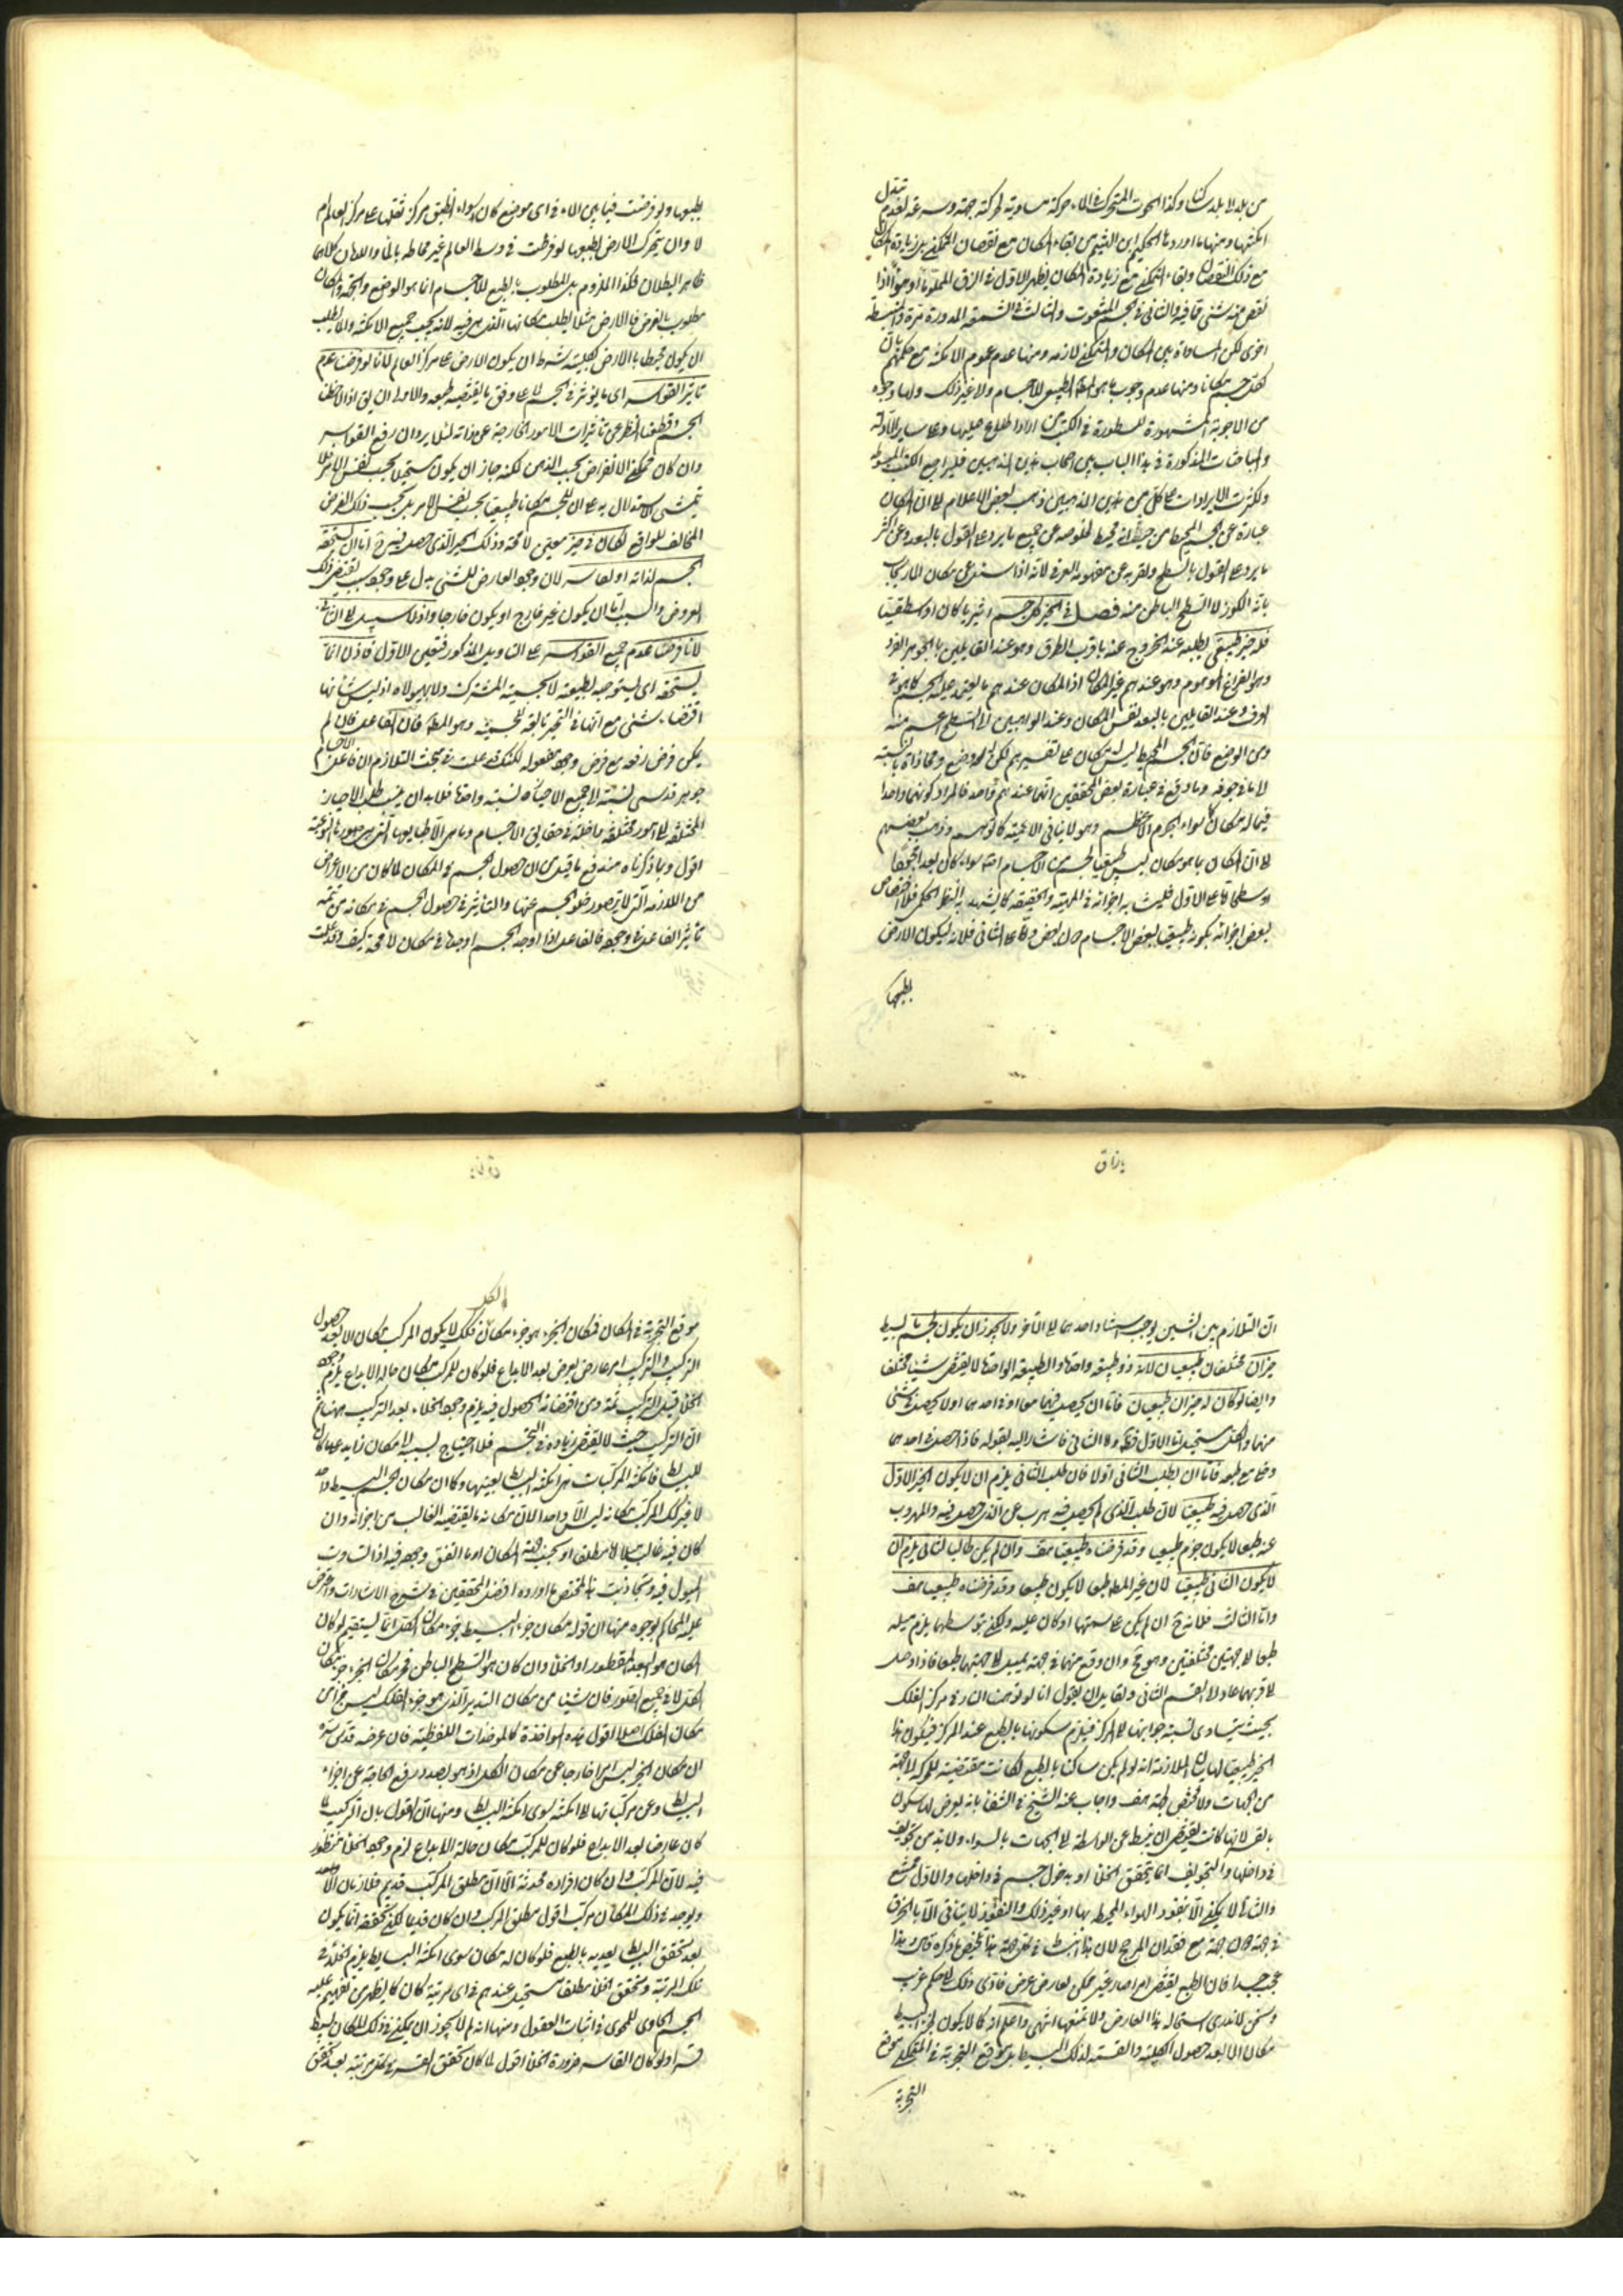 من بلد الى بلد ساكنا وكذا الحوت المتحرك في الماء حركة مساوية لحركته جهة وسرعة لعدم تبدل
امكنتهما ومنها ما اورده الحكيم ابن الهيثم من بقاء المكان مع نقصان المتمكن بل زيادة المكان
مع ذلك النقصان وبقاء المتمكن مع زيادة المكان يظهر الاول في الزق المملو ماء او هواء اذا
نقص منه شئ مما فيه والثاني في الجسم المثقوب والثالث في الشمعة المدورة مرة والمنبسطة
اخرى لكن المساواة بين المكان والمتمكن لازمة ومنها عدم عموم الامكنة مع حكمهم بان
لكل جسم مكانا ومنها عدم وجوب ما هو المكان الطبيعي للاجسام والى غير ذلك ولها وجوه
من الاجوبة المشهورة المسطورة في الكتب من اراد الاطلاع عليها وعلى ساير الادلة
والمباحثات المذكورة في هذا الباب بين اصحاب هذين المذهبين فليراجع الكتب المبسوطة
ولكثرت الايرادات على كل من هذين المذهبين ذهب بعض الاعلام الى ان المكان
عبارة عن الجسم المحيط من حيث انه محيط لخلوصه عن جميع ما يرد على القول بالبعد وعن اكثر
ما يرد على القول بالسطح ولقربه عن مفهومه العرفي لانه اذا سئل عن مكان الماء يجاب
بانه الكوز لا السطح الباطن منه فصل في الحيز كل جسم اثيريا كان او اسطقسيا
فله حيز طبيعي يطلبه عند الخروج عنه باقرب الطرق وهو عند القايلين بالجوهر الفرد
وهو الفراغ الموهوم وهو عندهم غير المكان اذ المكان عندهم ما يعتمد عليه الجسم كما هو في
العرف وعند القايلين بالبعد نفس المكان وعند الذاهبين الى السطح اعم منه
ومن الوضع فان الجسم المحيط ليس له مكان على تفسيرهم لكن له وضع ومحاذاة بالنسبة
الى ما في جوفه وما وقع في عبارة بعض المحققين انهما عندهم واحد فالمراد كونهما واحدا
فيما له مكان سواء الجرم الاعظم وهو لا ينافي الاعمية كما توهم وذهب بعضهم
الى ان المكان بما هو مكان ليس طبيعيا لجسم من الاجسام اصلا سواء كان بعدا مجردا
او سطحا اما على الاول فلتشابه اجزائه في المهية والحقيقة كما يشهد به النظر الحكمي فلا اختصاص
لبعض اجزائه بكونه طبيعيا لبعض الاجسام دون بعض واما على الثاني فلانه ليكون الارض
بطبعها
بطبعها ولو فرضت فيما بين الماء في اي موضع كان سواء انطبق مركز ثقلها على مركز العالم ام
لا وان يتحرك الارض بطبعها لو فرضت في وسط العالم غير محاطة بالماء واللازمان كلاهما
ظاهر البطلان فكذا الملزوم بل المطلوب بالطبع للاجسام انما هو الوضع والجهة والمكان
مطلوب بالعرض فالارض مثلا يطلب مكانها الذي هي فيه لانه يجب جميع الامكنة والماء يطلب
ان يكون محيطا بالارض كلية بشرط ان يكون الارض على مركز العالم لانا لو فرضنا عدم
تاثير القواسر اي ما يؤثر في الجسم لا على وفق ما يقتضيه طبعه والاولى ان يق اذا لاحظنا
الجسم وقطعنا النظر عن تاثيرات الامور الخارجة عن ذاته لئلا يرد ان رفع القواسر
وان كان ممكن الانفراض بحسب الذهن لكنه جاز ان يكون مستحيلا بحسب نفس الامر فلا
يتمشى الاستدلال به على ان للجسم مكانا طبيعيا بحسب نفس الامر بل بحسب ذلك الفرض
المخالف للواقع لكان في حيز معين لا محالة وذلك الحيز الذي حصل فيه ح اما ان يستحقه
الجسم لذاته او لقاسر لان وجود العارض للشئ يدل على وجود سبب يقتضي ذلك
العروض والسبب اما ان يكون غير خارج او يكون خارجا واذ لا سبيل الى الثاني
لانا فرضنا عدم جميع القواسر على التاويل المذكور فتعين الاول فاذن انما
يستحقه اي يستوجبه لطبيعته لا لجسمية المشتركة ولا لهيولاه اذ ليس شانها
اقتضاء شئ مع انها في التحيز تابعة للجسمية وهو المط فان الفاعل فان لم
يمكن فرض رفعه مع فرض وجود مفعوله لكنك قد علمت في مبحث التلازم ان فاعل الاجسام
جوهر قدسي نسبته الى جميع الاحياز نسبة واحدة فلابد ان ينسب طلب الاحياز
المختلفة الى امور مختلفة داخلة في حقايق الاجسام وما هي الا طبايعها التي هي صورها النوعية
اقول وبما ذكرناه مندفع ما قيل من ان حصول الجسم في المكان لما كان من الاعراض
من اللازمة التي لا يتصور خلو الجسم عنها والتاثير في حصول الجسم في مكانه من تتمة
تاثير الفاعل في وجوده فالفاعل اذا اوجد الجسم اوجده في مكان لا محالة كيف وقد علمت
بازاق
ان التلازم بين الشيئين يوجب استناد احدهما الى الاخر ولا يجوز ان يكون لجسم ما بسيط
حيزان مختلفان طبيعيان لانه ذو طبيعة واحدة والطبيعة الواحدة لا يقتضي شيئا مختلفا
وايضا لو كان له حيزان طبيعيان فاما ان يحصل فيهما معا او في احدهما او لا يحصل في شئ
منهما والكل مستحيل اما الاول فظ واما الثاني فاشار اليه بقوله فاذا حصل في احدهما
وخلي مع طبعه فاما ان يطلب الثاني او لا فان طلب الثاني يلزم ان لا يكون الحيز الاول
الذي حصل فيه طبيعيا لان طلب الذي لم يحصل فيه هرب عن الذي حصل فيه والمهروب
عنه طبعا لا يكون حيزه طبيعيا وقد فرضناه طبيعيا هف وان لم يكن طالبا للثاني يلزم ان
لا يكون الثاني طبيعيا لان غير المطلوب طبعا لا يكون طبيعيا وقد فرضناه طبيعيا هف
واما الثالث فلانه ح ان لم يكن على سمتهما او كان عليه ولكن توسطهما يلزم ميله
طبعا الى جهتين مختلفتين وهو مح وان وقع منهما في جهة يميل الى جهتهما طبعا فاذا وصل
الى اقربهما عاد الى القسم الثاني ولقايل ان يقول انا لو فرضنا النار في مركز الفلك
بحيث يتساوى نسبة جوانبها الى المركز فيلزم سكونها بالطبع عند المركز فيكون هذا
الحيز طبيعيا لها بيان الملازمة انه لو لم يكن ساكنا بالطبع لكانت مقتضية للحركة الى جهة
من الجهات ولا مخصص لجهة هف واجاب عنه الشيخ في الشفا بانه يعرض لها سكون
بالقسر لانها كانت يقتضي ان ينبسط عن الواسطة الى الجهات بالسواء ولابد من تجويف
في داخلها والتجويف انما يتحقق الخلا او بدخول جسم في داخلها والاول ممتنع
والثاني لا يمكن الا بنفوذ الهواء المحيط بها او غير ذلك والنفوذ لا يتاتى الا بالخرق
في جهة دون جهة مع فقدان المرجح لان هذا انبساط في كل جهة هذا تلخيص ما ذكره قال وهذا
عجيب جدا فان الطبع يقتضي امرا صار غير ممكن لعارض عرض فاذى ذلك الى حكم غريب
ونحن لا ندري استحالة هذا العارض ولا نمنعها انتهى واعلم انه كما لا يكون للجزء البسيط
مكان الا بعد حصول الكلية والقسمة لذلك البسيط بل موقع التجزية في المتمكن موقع
التجزية
موقع التجزية في المكان فمكان الجزء هو جزء مكان الكل فكذلك لا يكون المركب مكان الا بعد حصول
التركيب والتركيب امر عارض يعرض بعد الابداع فلو كان للمركب مكان حالة الابداع يلزم وجود
الخلا قبل التركيب ثمة ومن اقتضائه الحصول فيه يلزم وجود الخلاء بعد التركيب ههنا ثم
ان التركيب حيث لا يقتضي زيادة في الجسم فلا احتياج بسببه الى مكان زايد على ما كان
للبسايط فامكنة المركبات هي امكنة البسايط بعينها وكما ان مكان الجسم البسيط واحد
لا غير كذلك المركب مكانه ليس الا واحدا لان مكانه ما يقتضيه الغالب من اجزائه وان
كان فيه غالب اما مطلقا او بحسب جهة المكان او ما اتفق وجوده فيه اذا تساوت
الميول فيه وتجاذبت هذا ملخص ما اورده افضل المحققين في شرح الاشارات واعترض
عليه المحاكم بوجوه منها ان قوله مكان جزء البسيط جزء مكان الكل انما يستقيم لو كان
المكان هو البعد المفطور او الخلا وان كان هو السطح الباطن فمكان الجزء جزء مكان
الكل لا في جميع الصور فان شيئا من مكان التدوير الذي هو جزء الفلك ليس جزءا من
مكان الفلك اصلا اقول هذه المؤاخذة كالمؤاخذات اللفظية فان غرضه قدس سره
ان مكان الجزء ليس امرا خارجا عن مكان الكل اذ هو بصدد رفع الحاجة عن اجزاء
البسايط وعن مركباتها الى امكنة سوى امكنة البسايط ومنها ان القول بان التركيب لما
كان عارضا بعد الابداع فلو كان للمركب مكان حالة الابداع لزم وجود الخلا منظور
فيه لان المركب وان كان افراده محدثة الا ان مطلق المركب قديم فلا زمان الا
ويوجد في ذلك المكان مركب اقول مطلق المركب وان كان قديما لكن تحققه انما يكون
بعد تحقق البسايط بعدية بالطبع فلو كان له مكان سوى امكنة البسايط يلزم الخلا في
تلك المرتبة وتحقق الخلا مطلقا مستحيل عندهم في اي مرتبة كان كما يظهر من نفيهم علية
الجسم الحاوي للمحوي في اثبات العقول ومنها انه لم لا يجوز ان يمكن في ذلك المكان بسيط
قسرا ولو كان القاسر ضرورة الخلا اقول لما كان تحقق القسر في كل مرتبة بعد تحقق